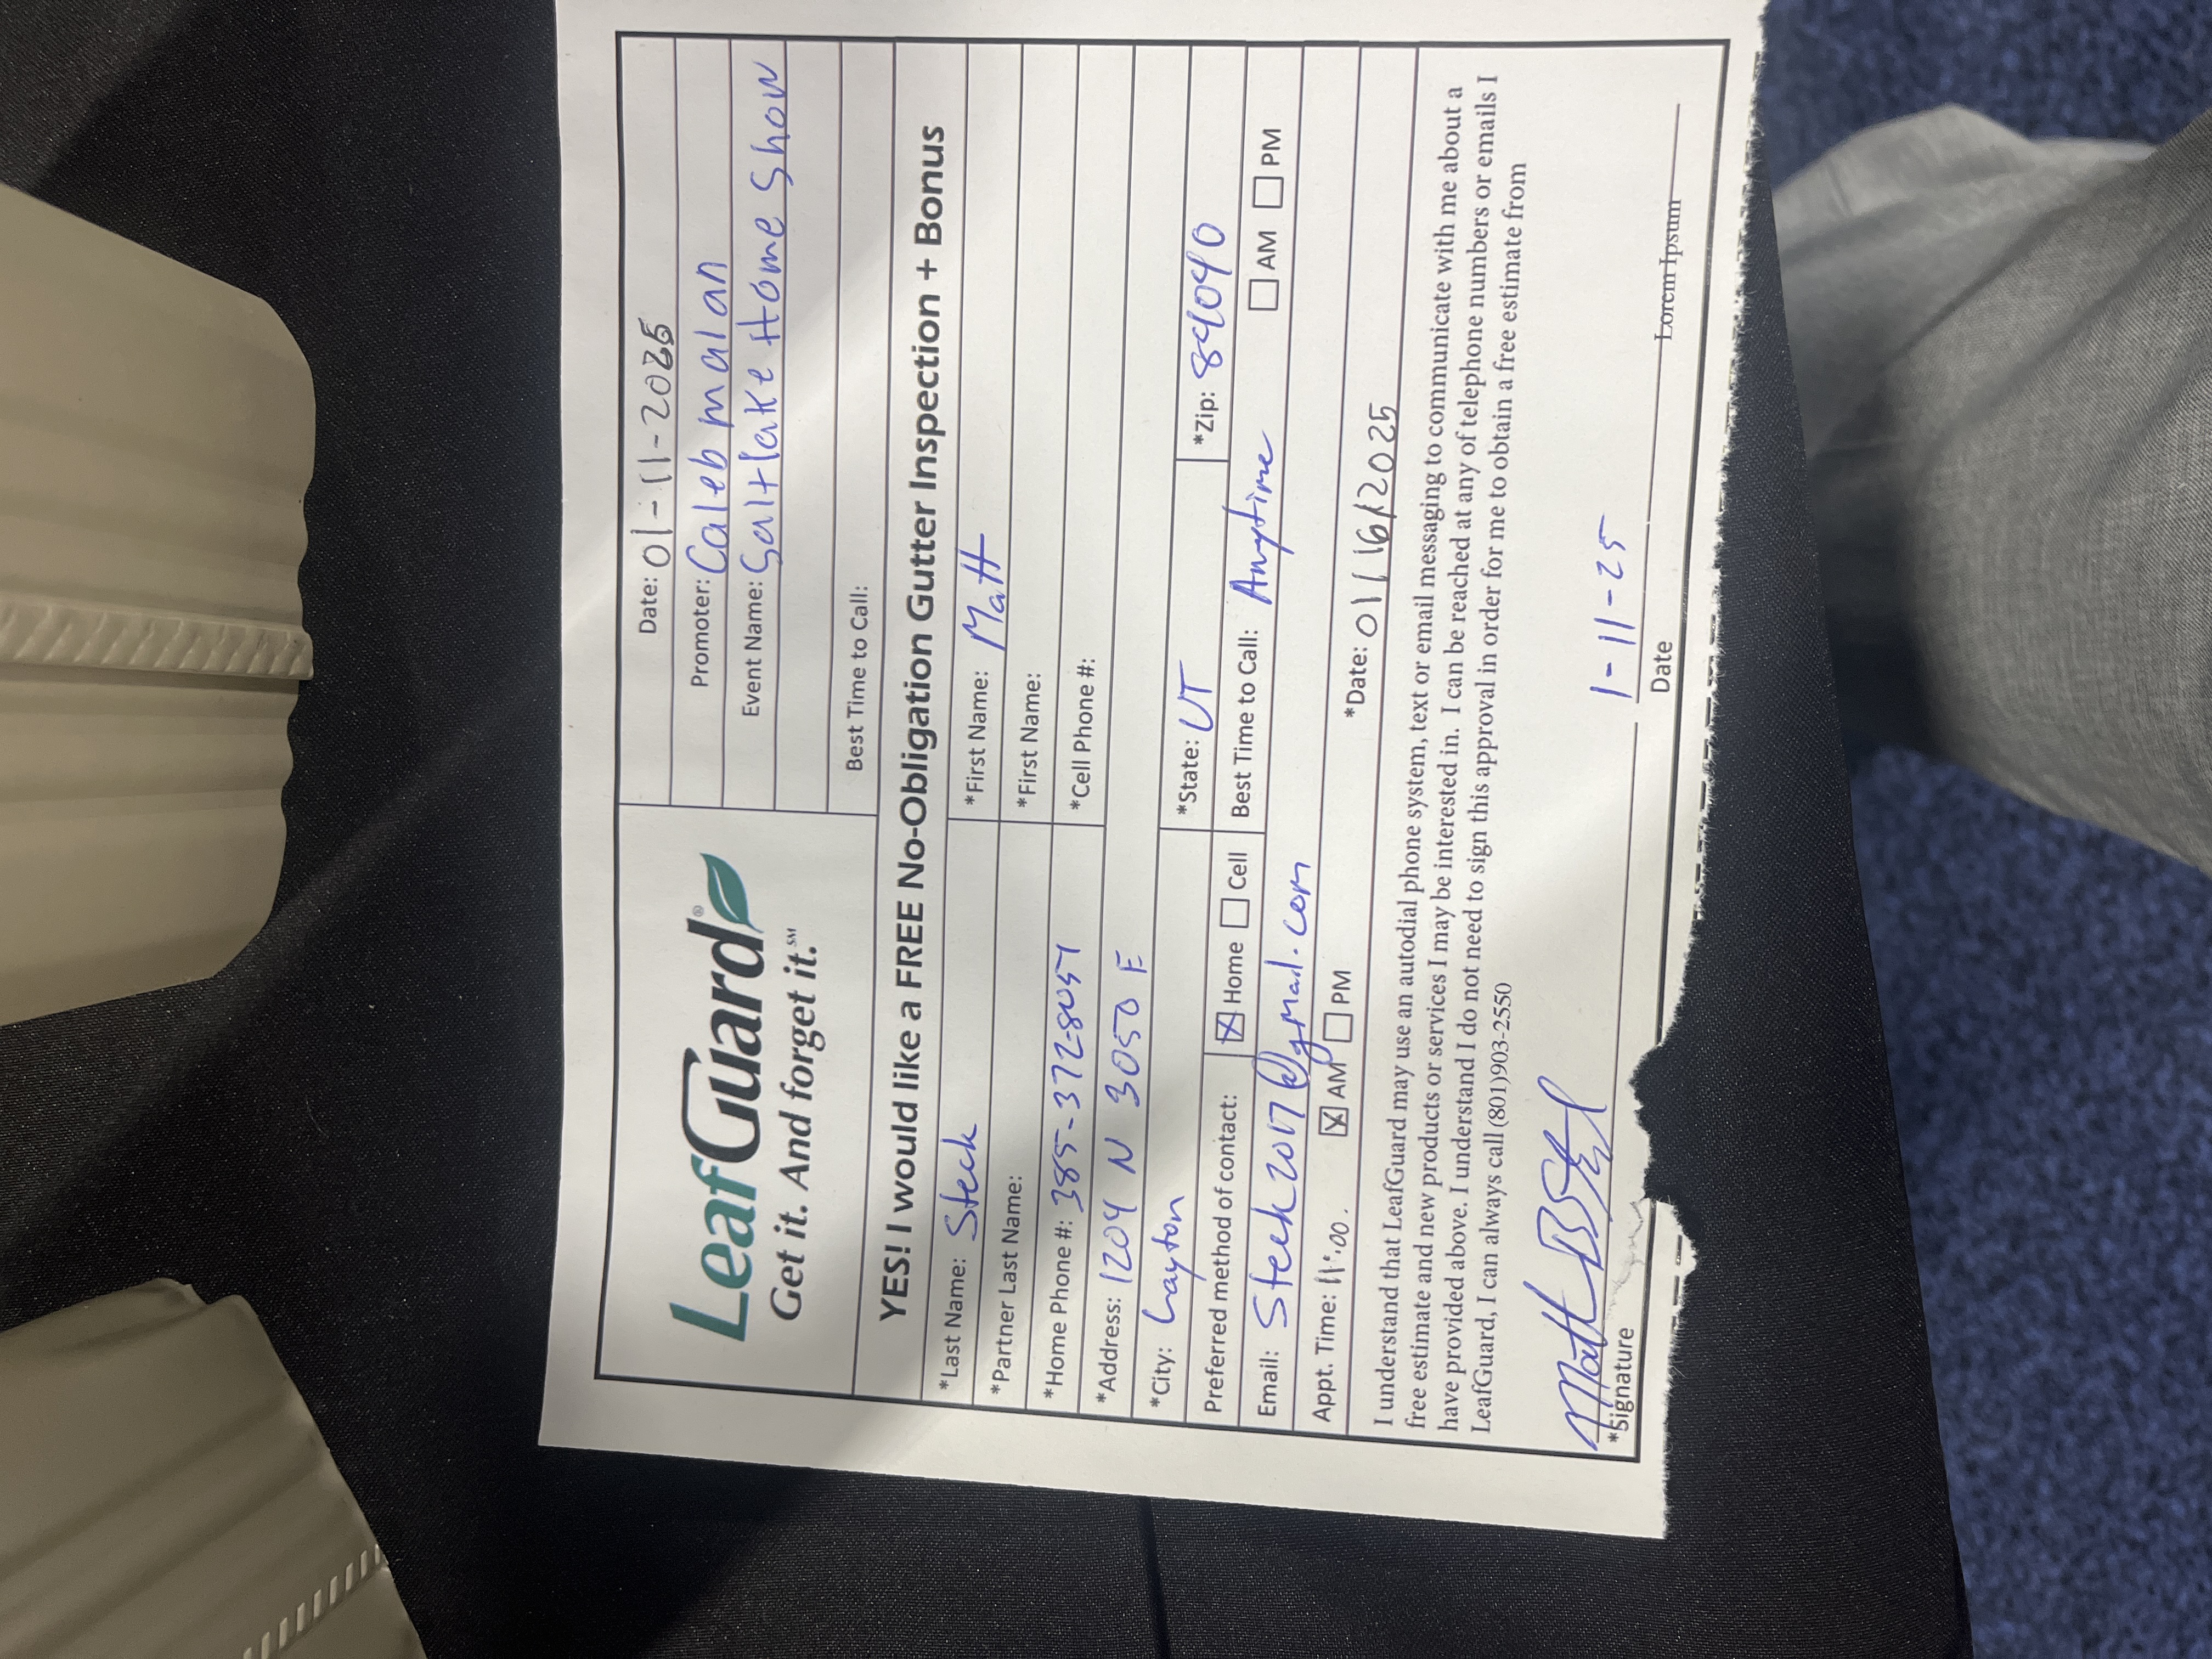 LeafGuard®
Get it. And forget it.℠
Date: 01-11-2025
Promoter: Caleb malan
Event Name: Saltlake Home Show
Best Time to Call:
YES! I would like a FREE No-Obligation Gutter Inspection + Bonus
*Last Name: Steck *First Name: Matt
*Partner Last Name: *First Name:
*Home Phone #: 385-372-8051 *Cell Phone #:
*Address: 1204 N 3050 E
*City: Layton *State: UT *Zip: 84040
Preferred method of contact: ☒ Home ☐ Cell Best Time to Call: Anytime ☐ AM ☐ PM
Email: Steck2017@gmail.com
Appt. Time: 11:00. ☒ AM ☐ PM *Date: 01/16/2025
I understand that LeafGuard may use an autodial phone system, text or email messaging to communicate with me about a
free estimate and new products or services I may be interested in. I can be reached at any of telephone numbers or emails I
have provided above. I understand I do not need to sign this approval in order for me to obtain a free estimate from
LeafGuard, I can always call (801)903-2550
Matt B Steck 1-11-25
*Signature Date Lorem Ipsum